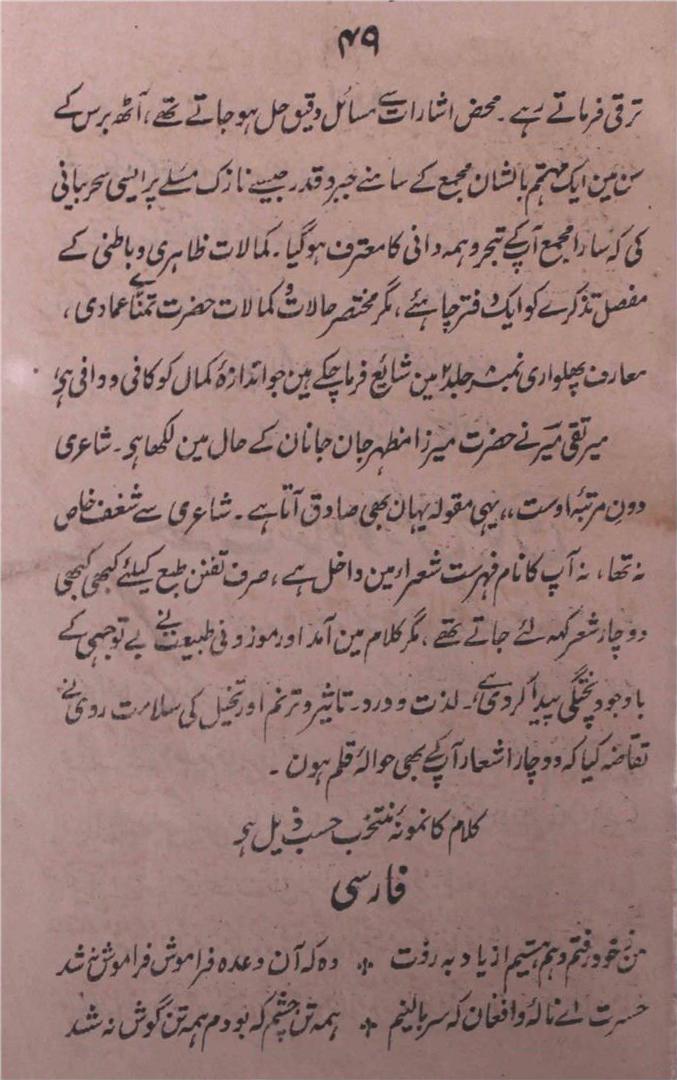 ۴۹
ترقی فرماتے رہے۔ محض اشارات سے مسائل دقیق حل ہو جاتے تھے، آٹھ برس کے
سن مین ایک مہتم بالشان مجمع کے سامنے جبر و قدر جیسے نازک مسئلے پر ایسی سحر بیانی
کی کہ سارا مجمع آپ کے تبحر و ہمہ دانی کا معترف ہو گیا۔ کمالات ظاہری و باطنی کے
مفصل تذکرے کو ایک دفتر چاہئے، مگر مختصر حالات و کمالات حضرت تمنا عمادی نے،
معارف پھلواری نمبر ۸ جلد ۲ مین شایع فرما چکے ہین جو اندازۂ کمال کو کافی و وافی ہی،
میر تقی میر نے حضرت میرزا مظہر جان جانان کے حال مین لکھا ہی۔ شاعری
دون مرتبۂ اوست،، یہی مقولہ یہان بھی صادق آتا ہے۔ شاعری سے شغف خاص
نہ تھا، نہ آپ کا نام فہرست شعراء مین داخل ہے، صرف تفنن طبع کیلئے کبھی کبھی
دو چار شعر کہہ لئے جاتے تھے، مگر کلام مین آمد اور موزونی طبیعت نے بے توجہی کے
باوجود پختگی پیدا کر دی ہے۔ لذت و درد۔ تاثیر و ترنم اور تخیل کی سلامت روی نے
تقاضہ کیا کہ دو چار اشعار آپ کے بھی حوالۂ قلم ہون۔
کلام کا نمونۂ منتخب حسب ذیل ہی
فارسی
من ز خود رفتم و ہم نیستم از یاد بہ روت ÷ دہ کہ آن وعدہ فراموش فراموش نہ شد
حسرت اے نالہ و افغان کہ سر بالینم ÷ ہمہ تن چشم کہ بودم ہمہ تن گوش نہ شد